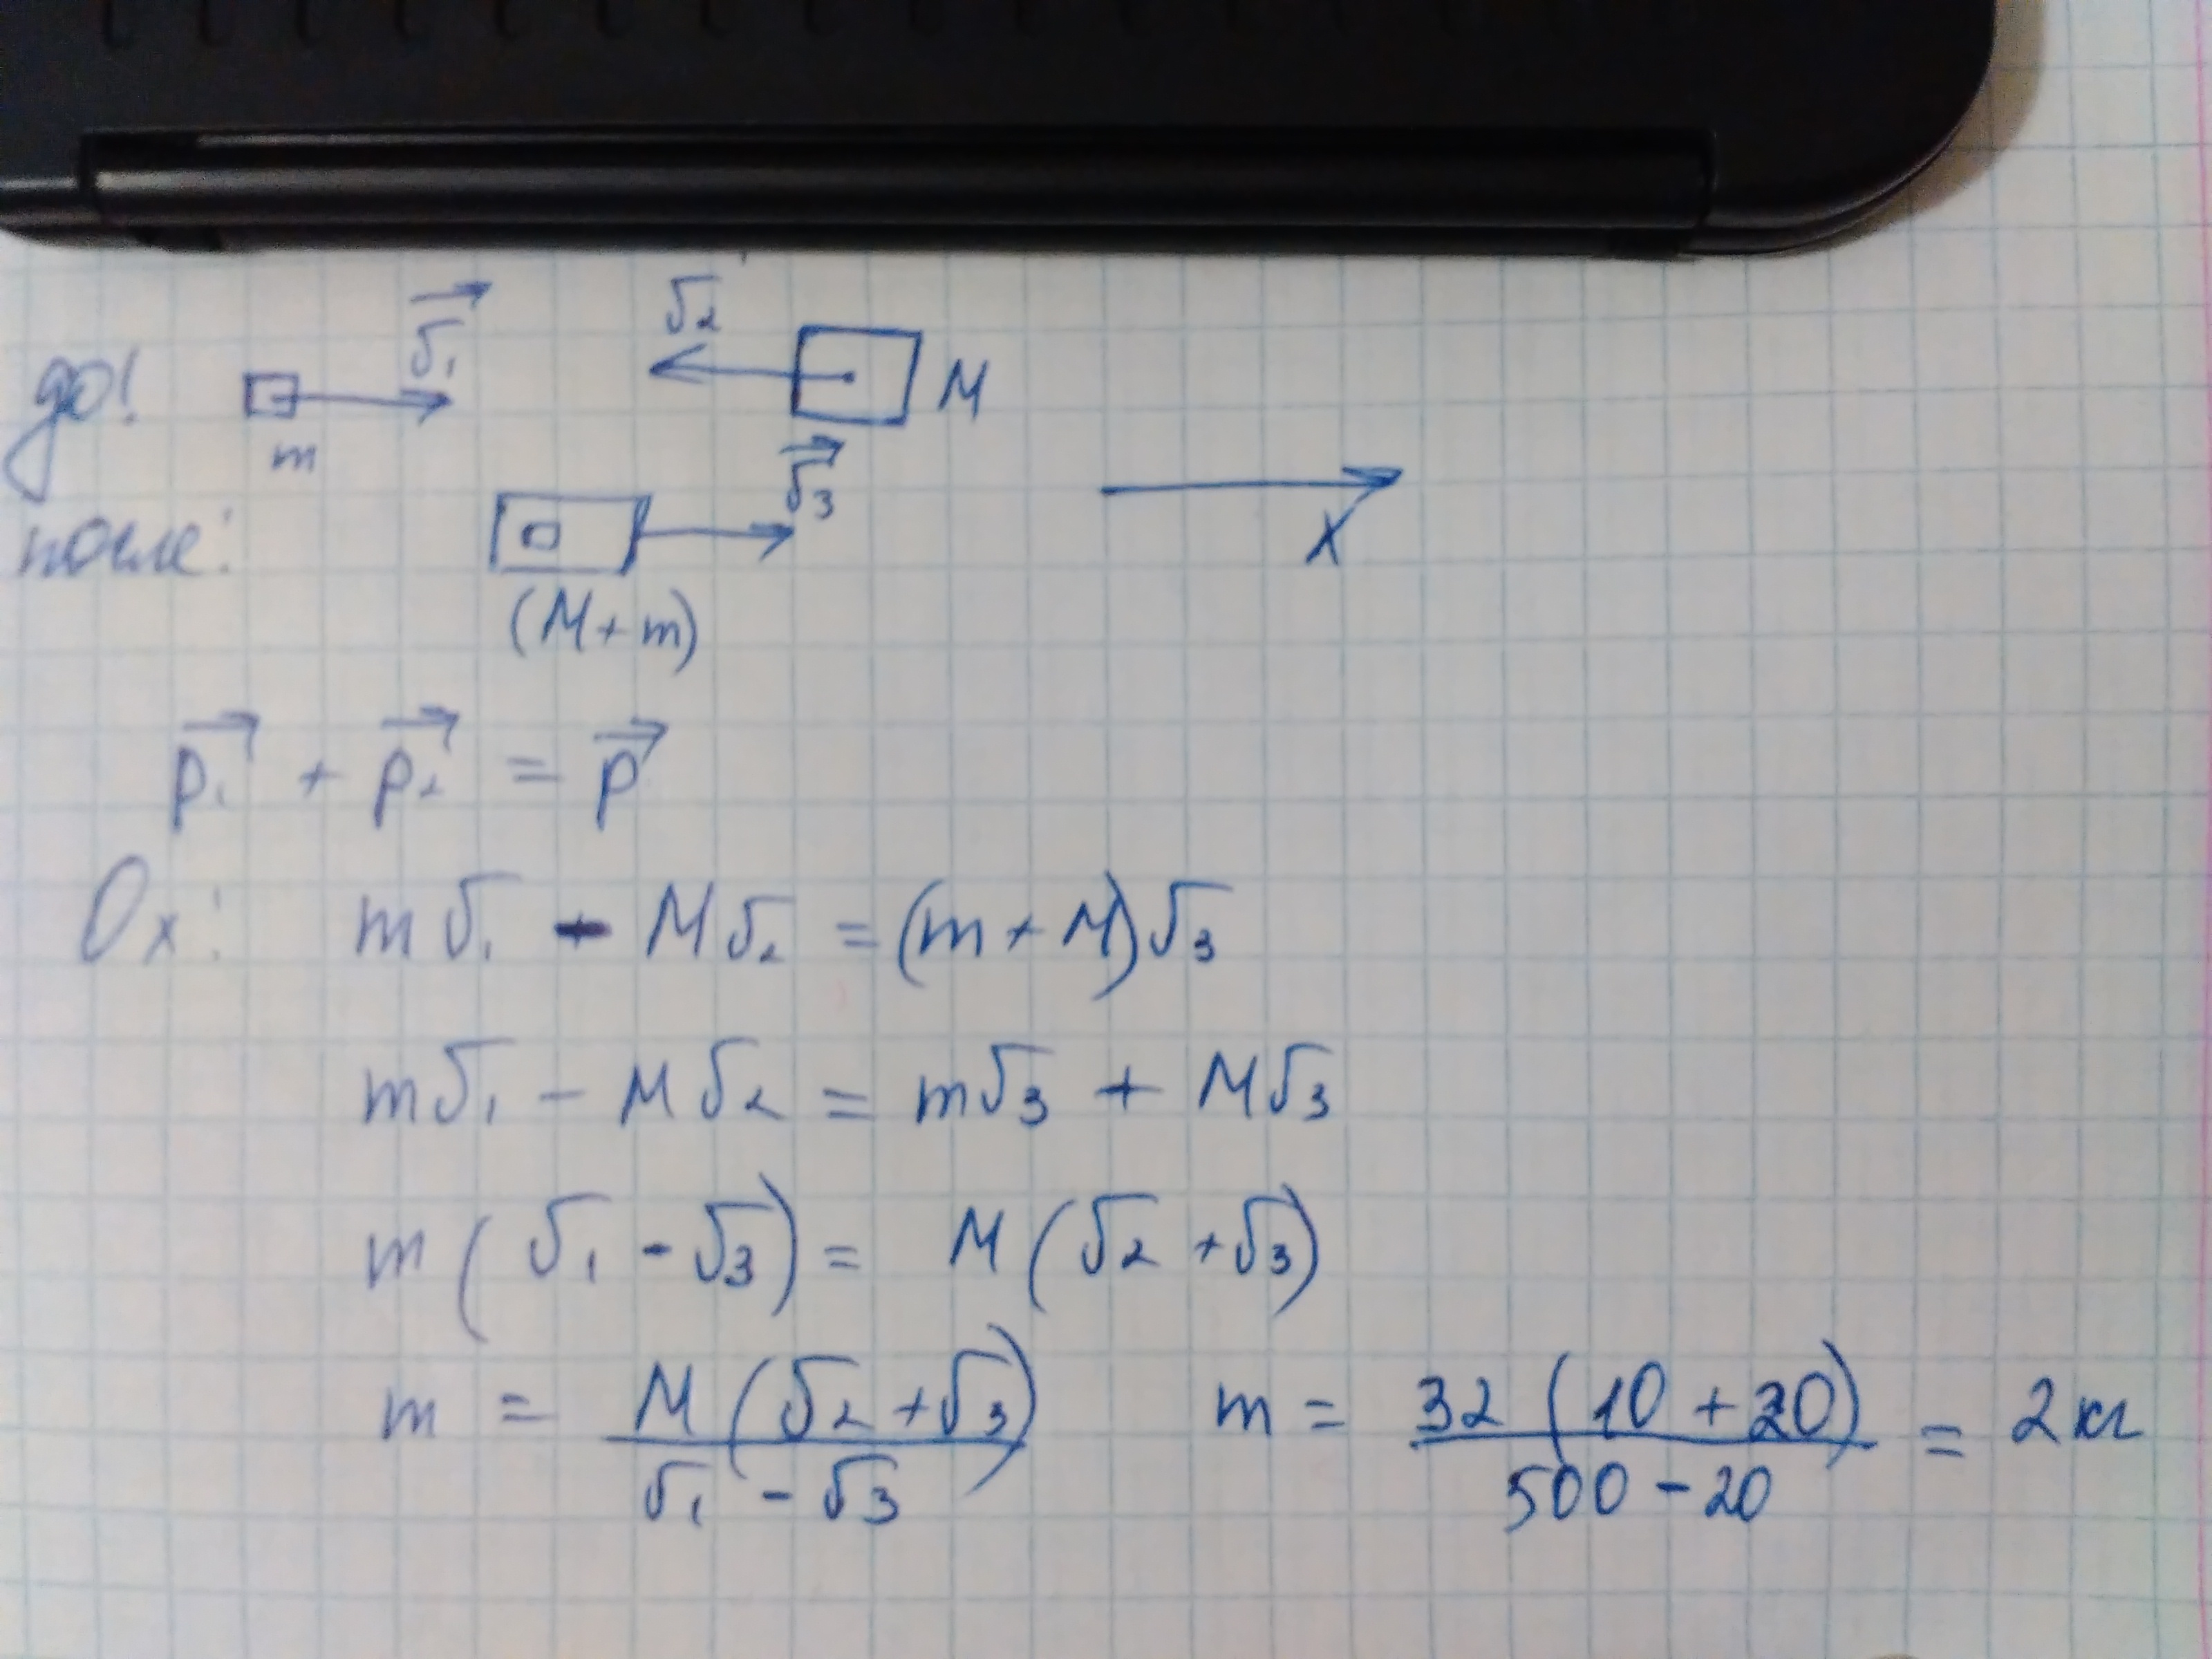 до:
m
v⃗₁
v₂
M
после:
v⃗₃
X
(M+m)
p⃗₁ + p⃗₂ = p⃗
Ox: mv₁ - Mv₂ = (m+M)v₃
mv₁ - Mv₂ = mv₃ + Mv₃
m(v₁ - v₃) = M(v₂ + v₃)
m = M(v₂+v₃) / v₁ - v₃ m = 32(10+20) / 500-20 = 2 кг